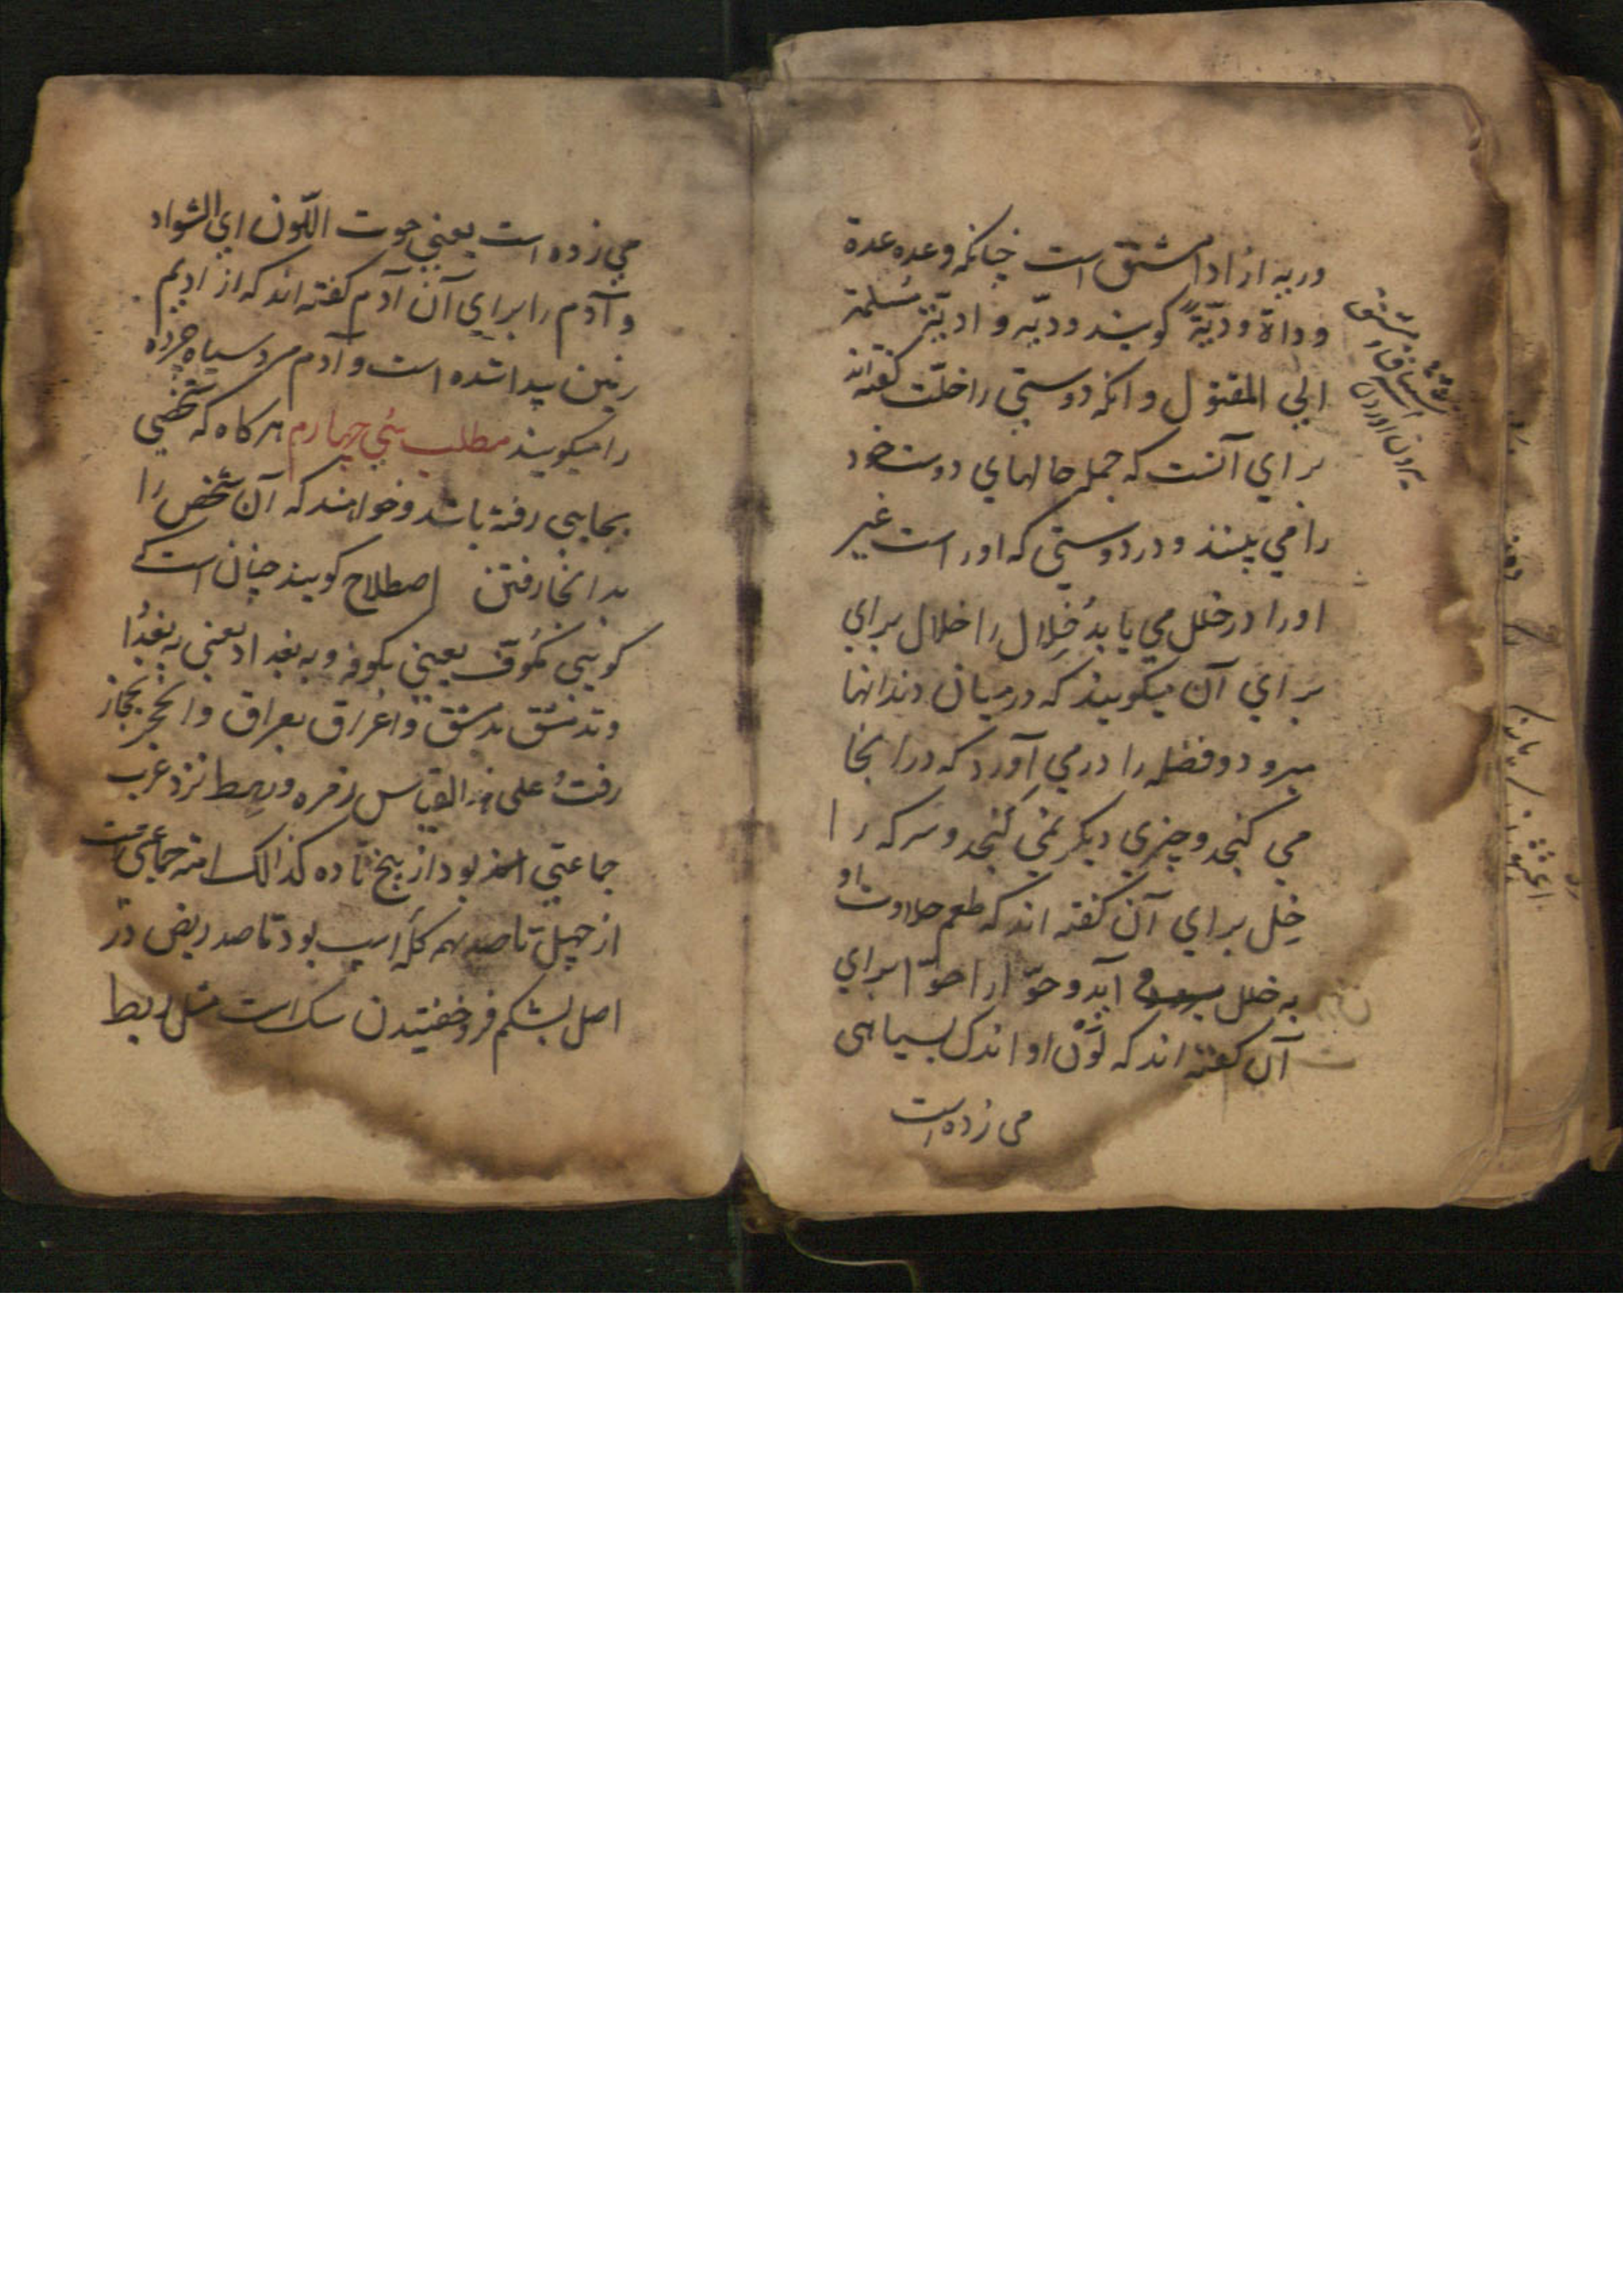 و ریه از اد مشتق است چنانکه وعده عدة
وداة ودیّةً کویند ودیّه و ادیّتْ مُسلمة
الی المقتول و انکه دوستی را خلّت کفته‌اند
برای آنست که جمله حالهای دوست خود
را می بیند و در دوستی که اور است غیر
اورا در خلل می یابد خِلال را خلال برای
برای آن میکویند که در میان دندانها
میرود و فضله را در می آورد که در انجا
می کنجد و چیزی دیکر نمی کنجد و سرکه را
خِل برای آن کفته اند که طعم حلاوت او
به خلل آید و حوّا را حوّا برای
آن کفته اند که لَوْن او اندک بسیاهی
می زده است
مشتق
بیرون اوردن
می زده است یعنی حوت اللّون ای السّواد
و آدم را برای آن آدم کفته اند که از ادیم
زمین پیدا شده است و آدم مرد سیاه چرده
را میکویند مطلب سُی چهارم هرکاه که شخصی
بجایی رفته باشد و خواهند که آن شخص را
بدانجا رفتن اصطلاح کویند چنان است که
کویی کُوّف یعنی بکوفه و به بغداد یعنی به بغدا
و تدمشق بدمشق و اعْراق بعراق و انحجز بحجاز
رفت و علی هذا القیاس زمره و رهط نزد عرب
جماعتی اند بود از پنج تا ده کذالک امّه جماعتی است
از چهل تا صد همه کلّه اسپ بود تا صد ربض در
اصل بشکم فرو خفتیدن سک است مثل ربط